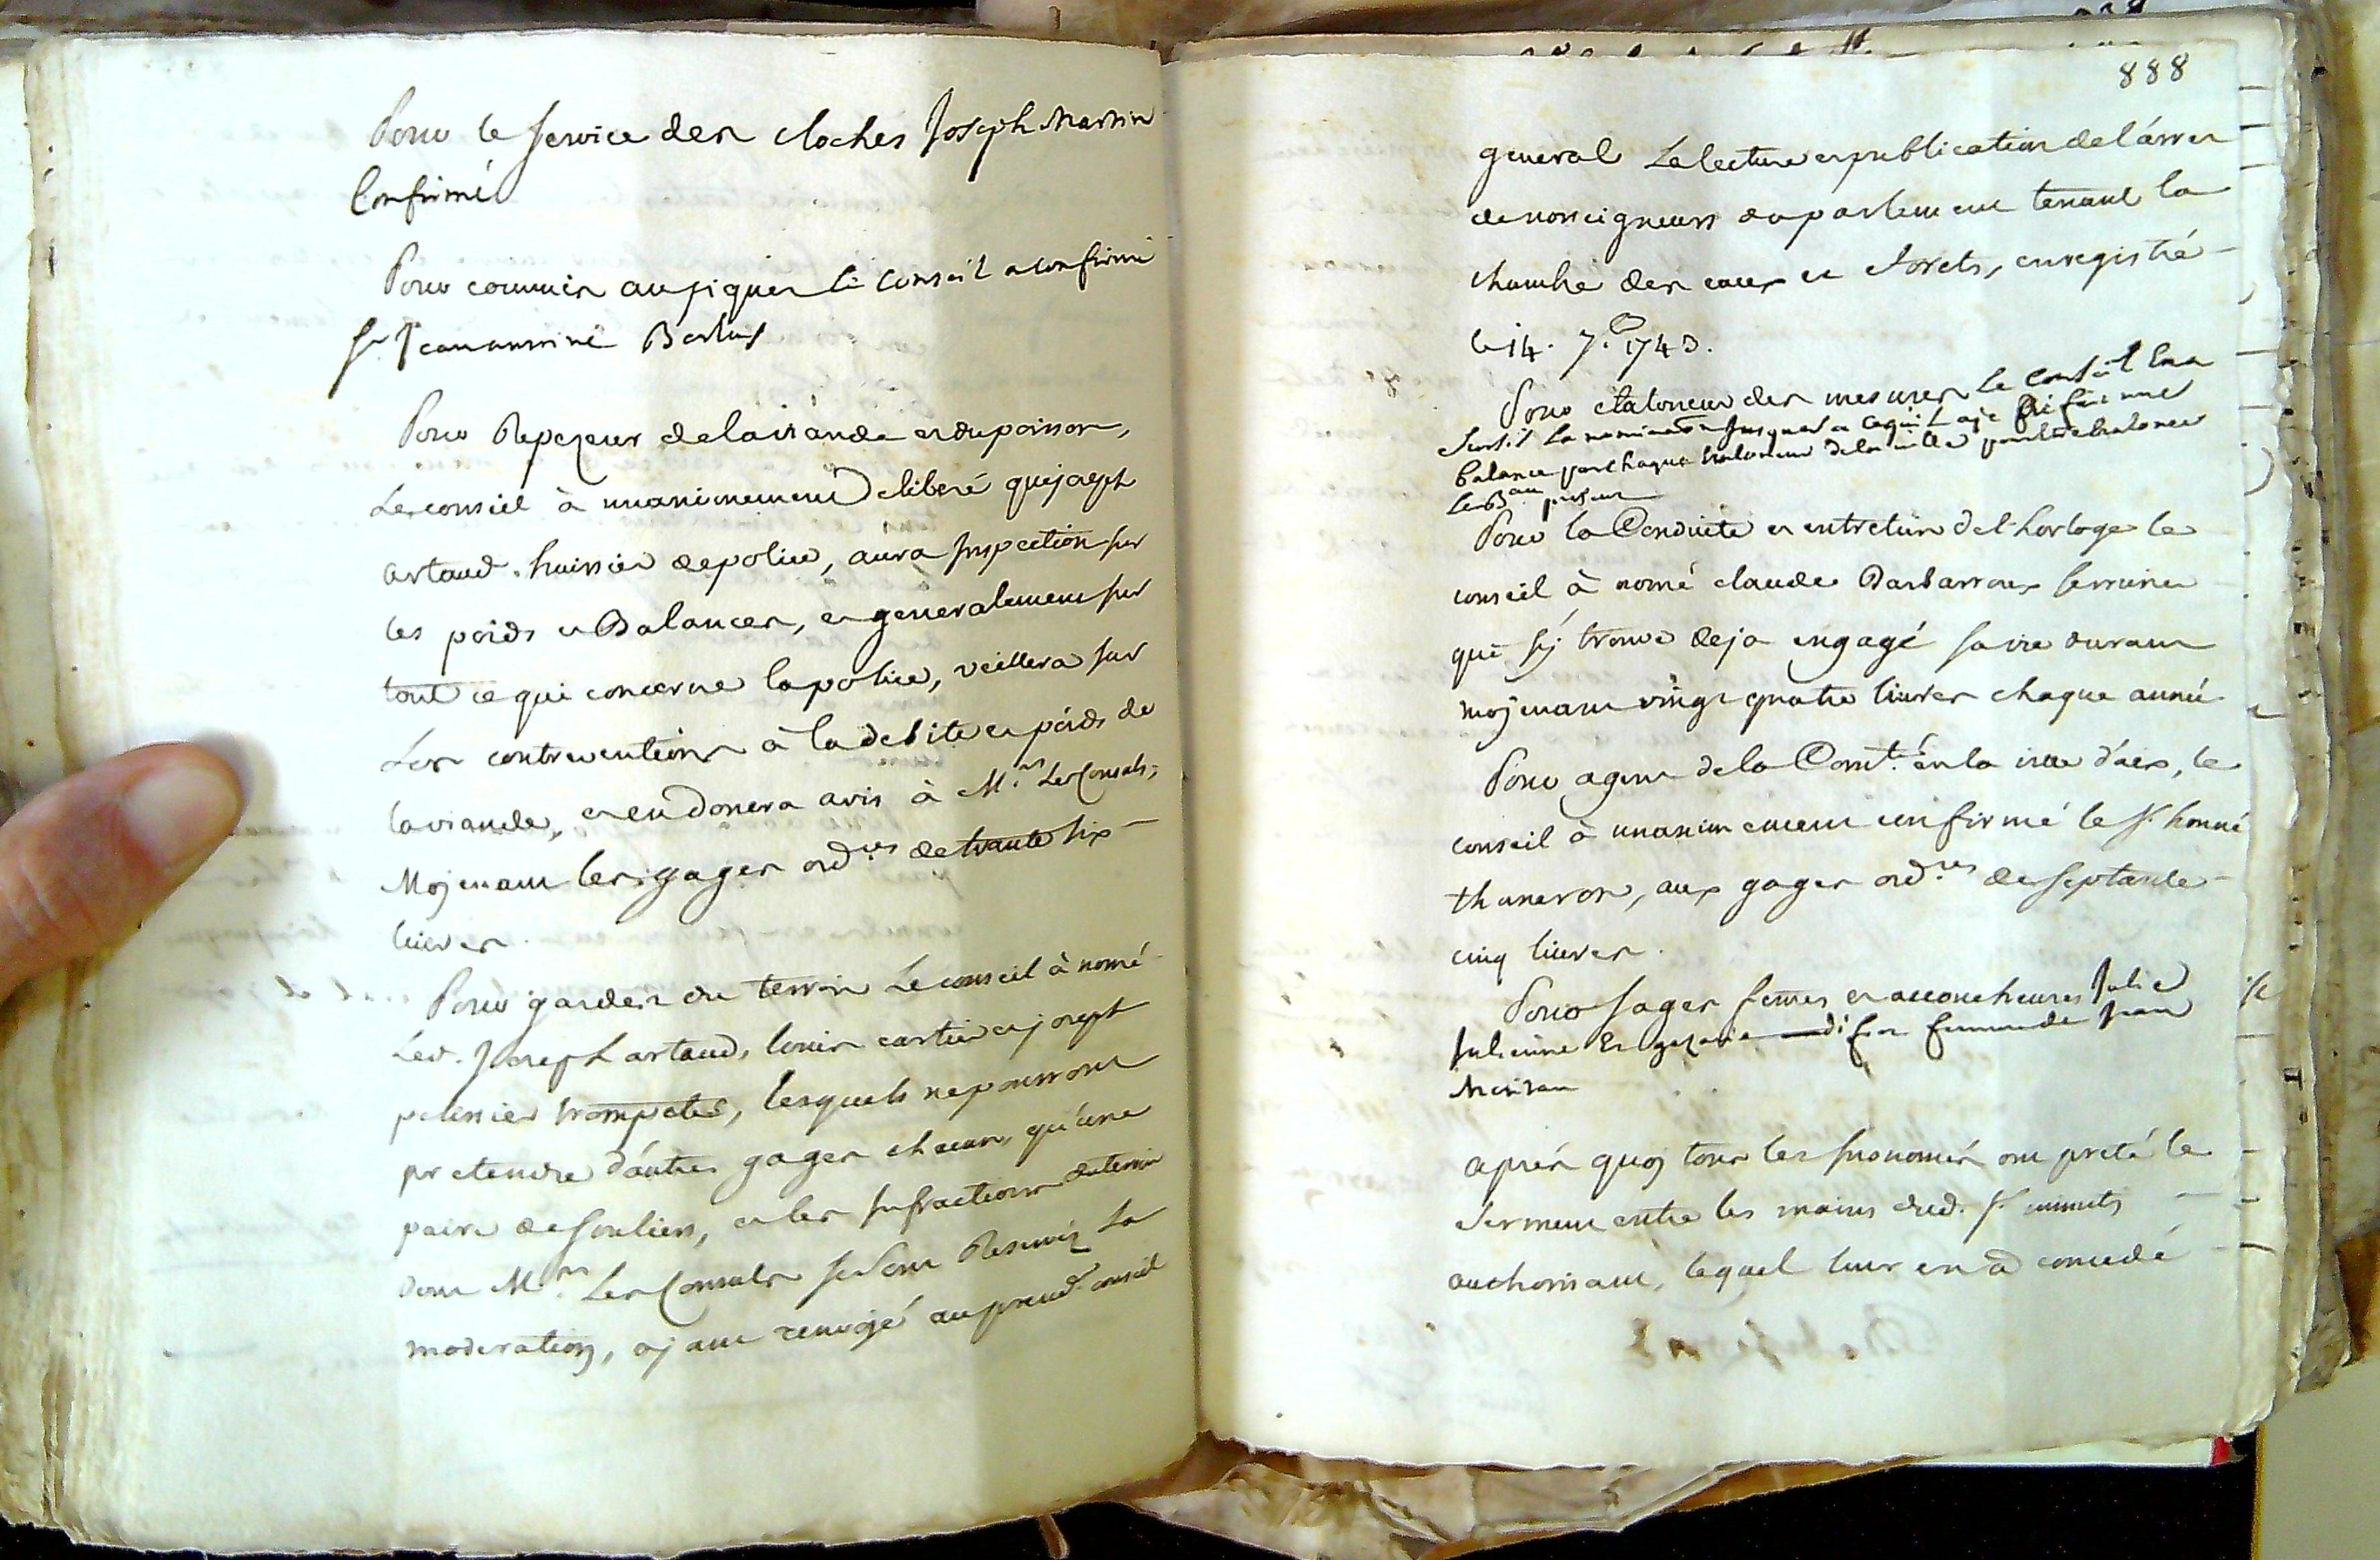 Pour le service des cloches Joseph Martin
Confirmé
Pour commis au piquet le conseil a confirmé
Sr Jean antoine Barlus
Pour Repezeur de la viande et du poisson,
Le conseil à unanimement deliberé que joseph
artaud huissier de police, aura Inspection sur
les poids et Balances, et generalement sur
tout ce qui concerne la police, veillera sur
Les contreventions à la debite et poids de
la viande, et en donera avis à M.rs Les Consuls,
Mojenant les gages ord.res de trante six
livres
Pour gardes du terroir Le conseil à nomé
Led. Joseph artaud, louis cartier et joseph
pelissier trompete, lesquels ne pourront
pretendre d'autres gages chacun, qu'une
paire de souliers, et les Infractions du terroir
dont M.rs Les Consuls se sont Reservéz La
moderation, ajant renvojé au premd. conseil
888
general La lecture et publication de l'arret
de nosseigneurs du parlement tenant la
chambre des eaux et forets, enregistré
le 14. 7.bre 1743.
Pour etaloneur des mesures Le Conseil en a
sursis La nomination Jusques a ce quil aje
balance par chaque de la ville pour
Le
Pour la Conduite et entretien de l'horloge le
conseil à nomé claude Barbarroux serrurier
qui s'ÿ trouve deja engagé sa vie durant
mojenant vingt quatre livres chaque année
Pour agent de la Com.té en la ville d'aix, le
conseil à unanimement confirmé le Sr. honnoré
thaneron, aux gages ord.res de septante
cinq livres.
Pour sages femes et accoucheuses Julie
Julienne et femme de Jean
apres quoj tous les susnomés ont preté le
serment entre les mains dud. Sr.
authorisant, lequel leur en a concedé